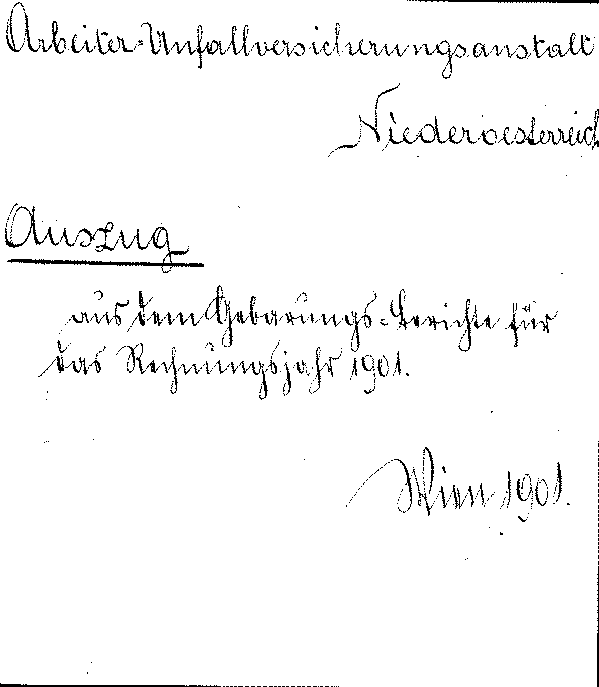 Arbeiter-Unfallversicherungsanstalt
Niederoesterreich
Auszug
aus dem Gebarungs-Berichte für
das Rechnungsjahr 1901.
Wien 1901.